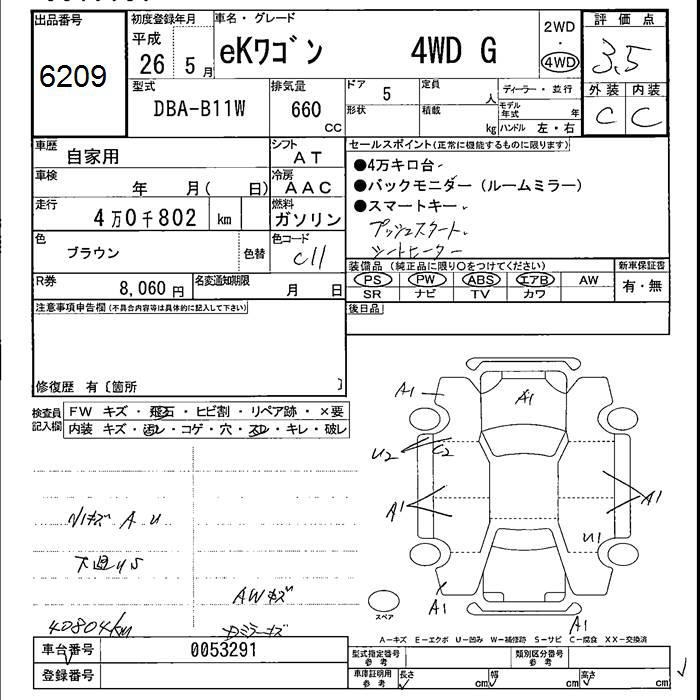 出品番号
6209
初度登録年月
平成
26 5月
車名・グレード
eKワゴン 4WD G
2WD
・
4WD
評価点
3.5
外装 内装
C C
型式
DBA-B11W
排気量
660
CC
ドア
5
形状
定員
人
積載
kg
ディーラー・並行
モデル年式 年
ハンドル 左・右
車歴
自家用
シフト
AT
車検
年 月( 日)
冷房
AAC
走行
4万0千802 km
燃料
ガソリン
色
ブラウン
色替
色コード
C11
R券
8,060円
名変通知期限
月 日
セールスポイント(正常に機能するものに限ります)
●4万キロ台
●バックモニダー(ルームミラー)
●スマートキー
プッシュスタート
シートヒーター
装備品(純正品に限り○をつけてください)
新車保証書
PS PW ABS エアB AW
有・無
SR ナビ TV カワ
後日品
注意事項申告欄(不具合内容等は具体的に記入して下さい)
修復歴 有〔箇所 〕
検査員
記入欄
FW キズ・飛石・ヒビ割・リペア跡・×要
内装 キズ・汚レ・コゲ・穴・スレ・キレ・破レ
A U
AWキズ
40804km
A1
A1
U2
C2
A1
A1
U1
A1
A1
スペア
A-キズ E-エクボ U-凹み W-補修跡 S-サビ C-腐食 XX-交換済
車台番号
0053291
登録番号
型式指定番号
参考
類別区分番号
参考
車庫証明用
参考
長さ cm
幅 cm
高さ cm